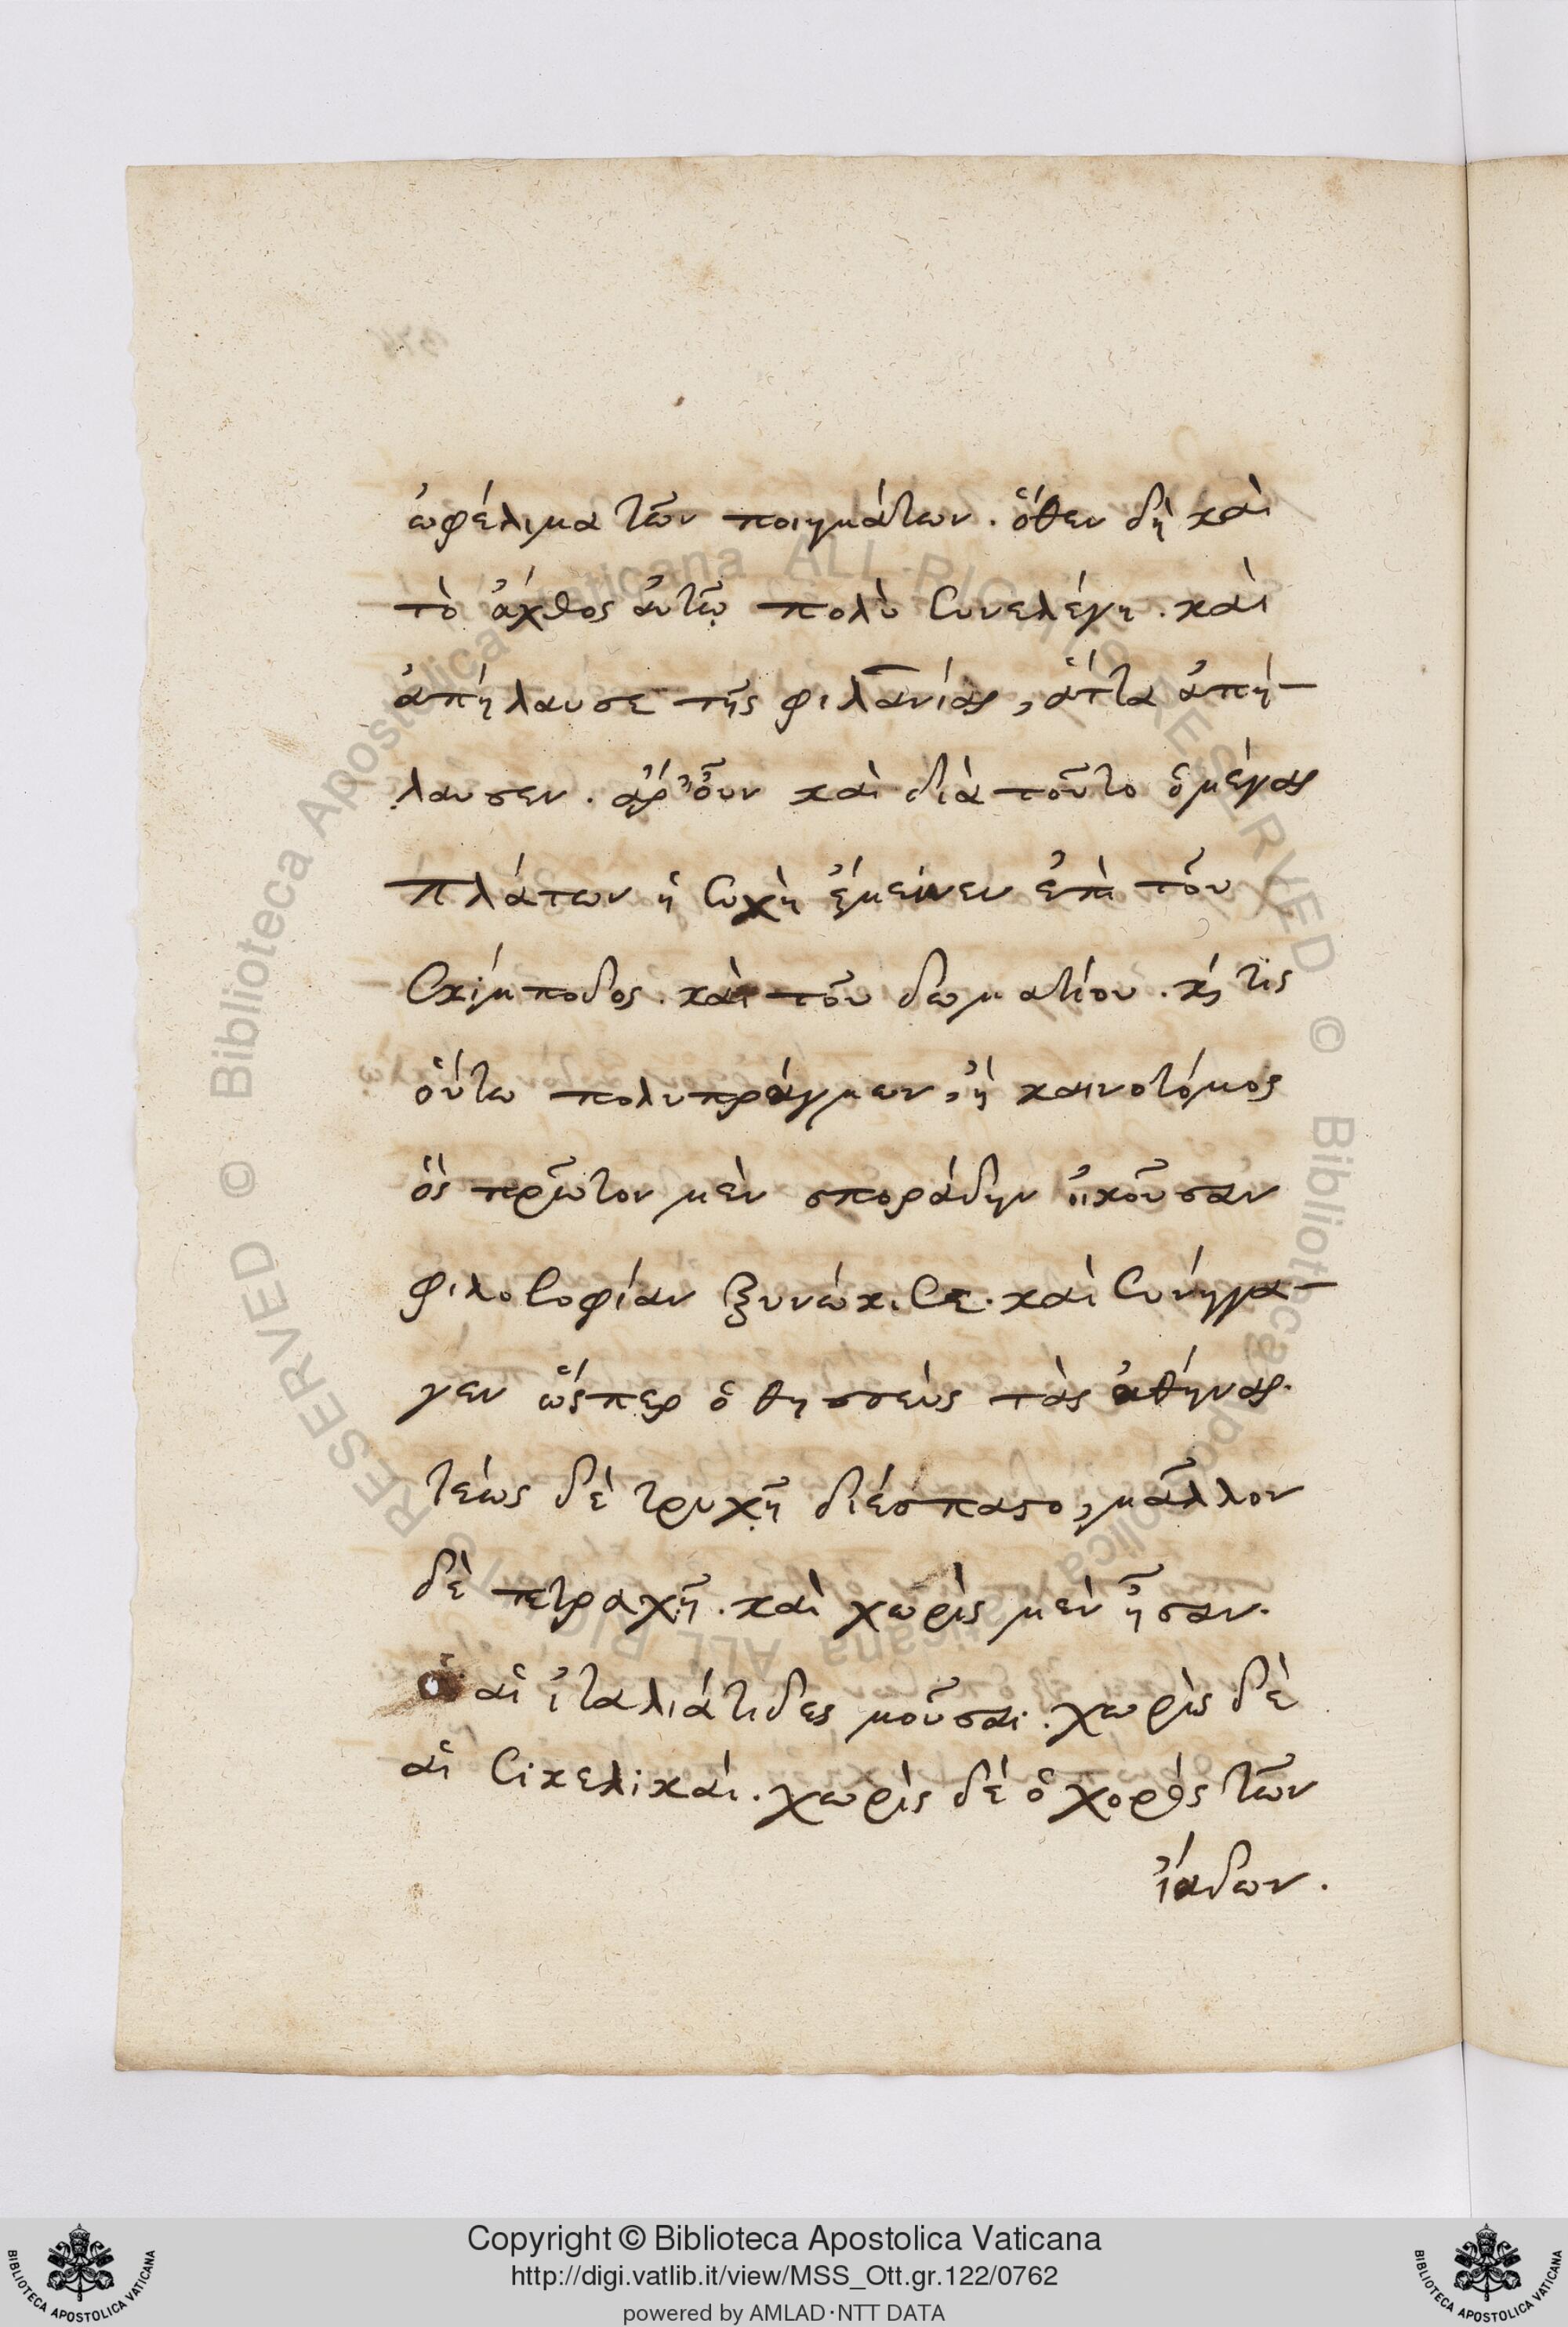 ὠφέλιμα τῶν ποιημάτων. ὅθεν δὴ καὶ
τὸ ἄχθος αὐτῷ πολὺ συνελέγη. καὶ
ἀπήλαυσε τῆς φιλανίας, ἅττα ἀπή-
λαυσεν. ἆρ' οὖν καὶ διὰ τοῦτο ὁ μέγας
πλάτων ἡσυχῆ ἔμεινεν ἐπὶ τοῦ
σκίμποδος. καὶ τοῦ δωματίου. καί τις
οὕτω πολυπράγμων, ἢ καινοτόμος
ὃς πρῶτον μὲν σποράδην οἰκοῦσαν
φιλοσοφίαν ξυνώκισε. καὶ συνήγα-
γεν ὥσπερ ὁ θησσεὺς τὰς ἀθήνας.
τέως δὲ τρυχῇ διέσπαστο, μᾶλλον
δὲ τετραχῇ. καὶ χωρὶς μὲν ἦσαν.
αἱ ἰταλιάτιδες μοῦσαι. χωρὶς δὲ
αἱ σικελικαὶ. χωρὶς δὲ ὁ χορὸς τῶν
ἰάδων.
Copyright © Biblioteca Apostolica Vaticana
http://digi.vatlib.it/view/MSS_Ott.gr.122/0762
powered by AMLAD·NTT DATA
BIBLIOTECA APOSTOLICA VATICANA
BIBLIOTECA APOSTOLICA VATICANA